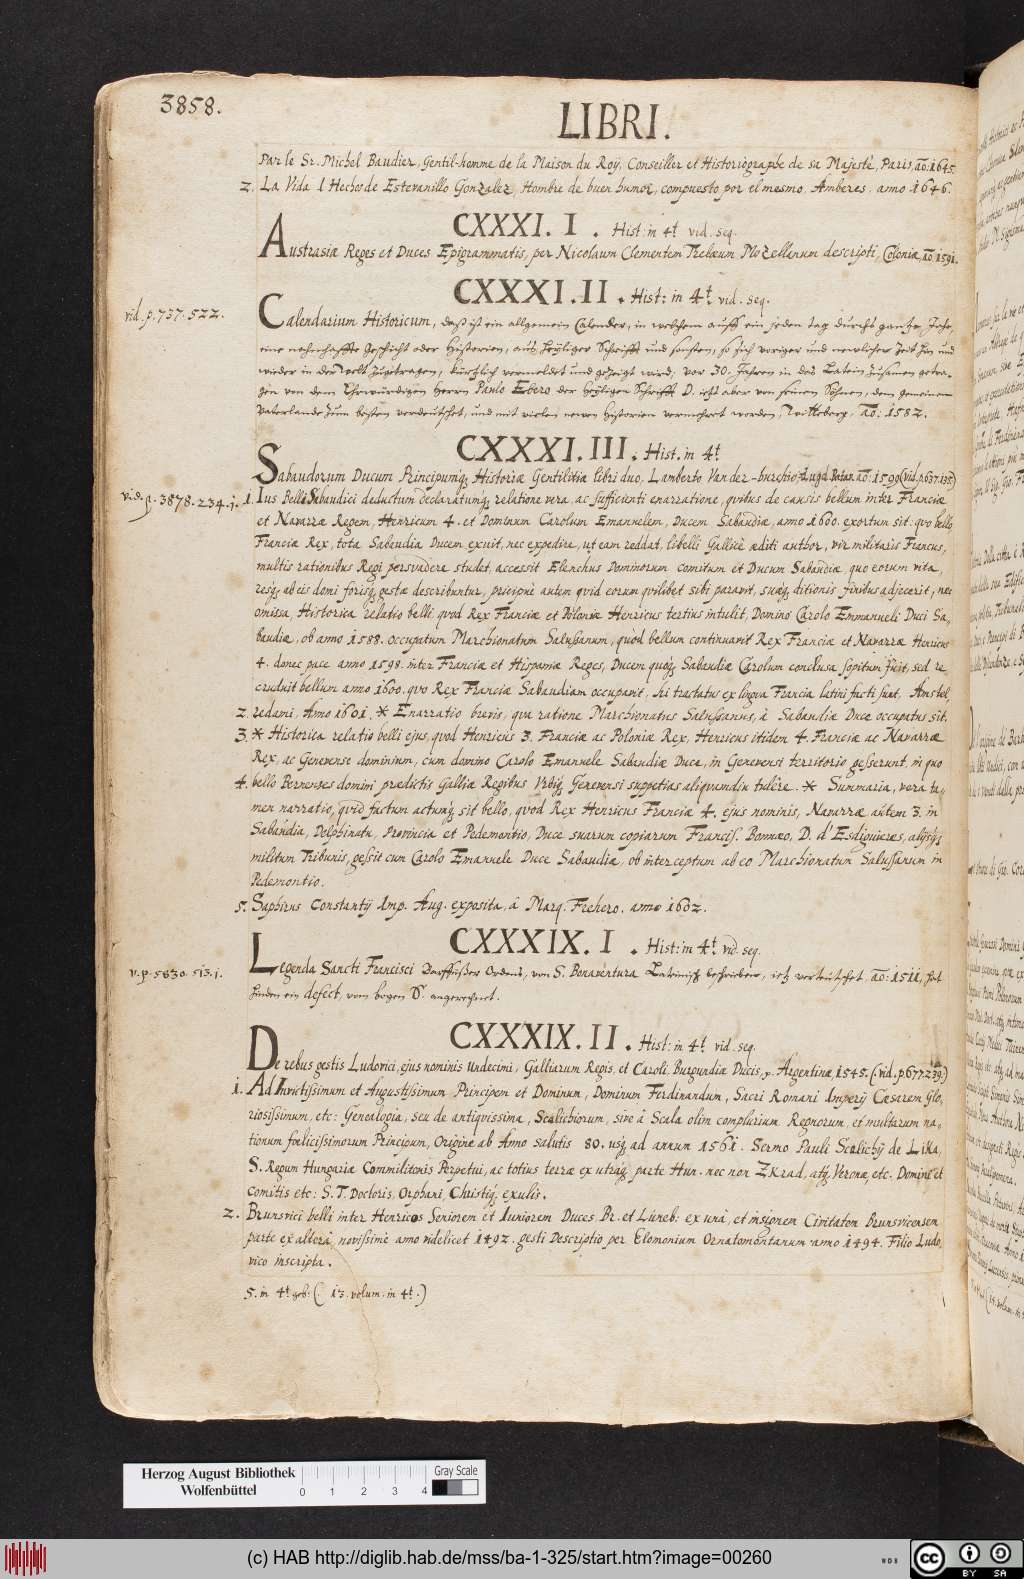 3858.
LIBRI.
Par le Sr. Michel Baudier, Gentil-homme de la Maison du Roÿ, Conseiller et Historiographe de sa Majesté, Paris, ao. 1645.
2. La Vida I Hechos de Estevanillo Gonzalez, Hombre de buen humor, compuesto por el mesmo. Amberes, anno 1646.
CXXXI. I. Hist: in 4t vid. seq.
Austrasiæ Reges et Duces Epigrammatis, per Nicolaum Clementem Trelæum Mozellanum descripti, Coloniæ, ao. 1591.
CXXXI. II. Hist: in 4t. vid. seq.
vid. p. 737. 522.
Calendarium Historicum, daß ist ein allgemein Calender, in welchem auff ein jeden tag durchs gantze Jahr,
eine nahmhaffte Geschicht oder Historien, auß Heyliger Schrifft und sonsten, so sich voriger und newlicher Zeit hin und
wieder in der Welt zugetragen, kürtzlich vermeldet und gezeigt wird, vor 30. Jahren in das Latein zusamen getra-
gen von dem Ehrwürdigen Herrn Paulo Ebero der Heyligen Schrifft D. jetzt aber von seinen Söhnen, dem gemeinen
Vaterlande zum besten verdeutschet, und mit vielen newen Historien vermehret worden, Witteberg, ao: 1582.
CXXXI. III. Hist. in 4t
Sabaudorum Ducum Principumq; Historiæ Gentilitiæ libri duo, Lamberto Vander-burchio, Lugd. Batav. ao. 1599. (vid. p. 637. 135)
vid. p. 3878. 234. 1.
1. Ius Belli Sabaudici deductum declaratumq; relatione vera, ac sufficienti enarratione, quibus de causis bellum inter Franciæ
et Navarræ Regem, Henricum 4. et Dominum Carolum Emanuelem, Ducem Sabaudiæ, anno 1600. exortum sit: quo bello
Franciæ Rex, tota Sabaudia Ducem exuit, nec expedire, ut eam reddat, libelli Gallicè æditi author, vir militaris Francus,
multis rationibus Regi persvadere studet, accessit Elenchus Dominorum comitum et Ducum Sabaudiæ, quo eorum vita,
resq; ab eis domi forisq; gestæ describuntur, præcipuè autem quid eorum quilibet sibi paravit, suæq; ditionis finibus adjecerit, nec
omissa, Historica relatio belli, quod Rex Franciæ et Poloniæ Henricus tertius intulit, Domino Carolo Emmanueli Duci Sa,
baudiæ, ob anno 1588. occupatum Marchionatum Salussanum, quod bellum continuavit Rex Franciæ et Navarræ Henricus
4. donec pace anno 1598. inter Franciæ et Hispaniæ Reges, Ducem quoq; Sabaudiæ Carolum conclusa sopitum fuit, sed re
cruduit bellum anno 1600. quo Rex Franciæ Sabaudiam occupavit, hi tractatus ex lingua Francia latini facti sunt. Amstel,
2. redami, Anno 1601. * Enarratio brevis, qua ratione Marchionatus Salussanus, à Sabaudiæ Duce occupatus sit.
3. * Historica relatio belli ejus, quod Henricus 3. Franciæ ac Poloniæ Rex, Henricus itidem 4. Franciæ ac Navarræ
Rex, ac Genevense dominium, cum domino Carolo Emanuele Sabaudiæ Duce, in Genevensi territorio gesserunt, in quo
4. bello Bernenses domini prædictis Galliæ Regibus Urbiq; Genevensi suppetias aliquamdiu tulêre. * Summaria, vera ta-
men narratio, quid factum actumq; sit bello, quod Rex Henricus Franciæ 4. ejus nominis, Navarræ autem 3. in
Sabaudia, Delphinatu, Provincia et Pedemontio, Duce suarum copiarum Francisc. Bonnæo, D. d'Esdiguieres, alijsq;
militum Tribunis, gessit cum Carolo Emanuele Duce Sabaudiæ, ob interceptum ab eo Marchionatum Salussanum in
Pedemontio.
5. Saphirus Constantij Imp. Aug. exposita, â Marq. Frehero. anno 1602.
CXXXIX. I. Hist: in 4t. vid. seq.
v. p. 5830. 513. 1.
Legenda Sancti Francisci Barfüßer Ordens, von S. Bonaventura Lateinisch beschrieben, jetz verteutschet, ao: 1511, hat
hinden ein defect, vom bogen S. angerechnet.
CXXXIX. II. Hist: in 4t. vid. seq.
De rebus gestis Ludovici, ejus nominis Undecimi, Galliarum Regis, et Caroli, Burgundiæ Ducis, p. Argentinæ, 1545. (vid. p. 677. 239.)
1. Ad Invictissimum et Augustissimum Principem et Dominum, Dominum Ferdinandum, Sacri Romani Imperij Cæsarem Glo,
riosissimum, etc: Genealogia, seu de antiquissima, Scalichiorum, sive à Scala olim complurium Regnorum, et multarum na-
tionum fœlicissimorum Principum, Origine ab Anno salutis 80. usq; ad annum 1561. Sermo Pauli Scalichij de Lika,
S. Regum Hungariæ Commilitonis Perpetui, ac totius terræ ex utraq; parte Hun. nec non Zkrad, atq; Veronæ, etc. Domini et
Comitis etc: S. T. Doctoris, Orphani, Christiq; exulis.
2. Brunsvici belli inter Henricos Seniorem et Iuniorem Duces Br. et Luneb: ex unâ, et insignem Civitatem Brunsvicensem
parte ex alterâ, novissimè anno videlicet 1492. gesti Descriptio per Telomonium Ornatomontanum anno 1494. Filio Ludo,
vico inscripta.
5. in 4t. geb: (13. volum. in 4t.)
Herzog August Bibliothek
Wolfenbüttel
0 1 2 3 4
Gray Scale
(c) HAB http://diglib.hab.de/mss/ba-1-325/start.htm?image=00260
WDB
cc BY SA